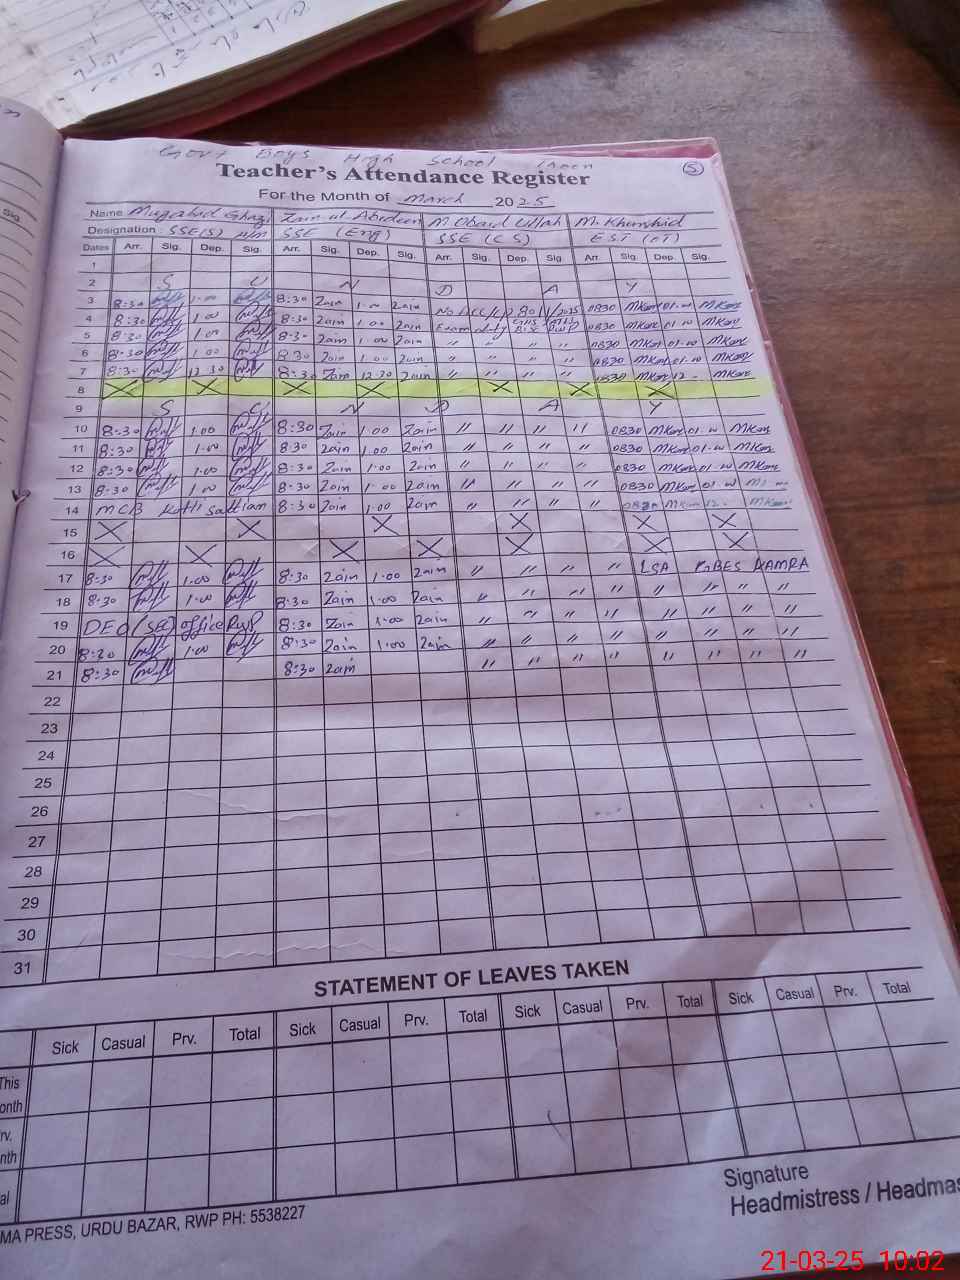 Govt Boys High School
Teacher's Attendance Register
5
For the Month of March 2025
Name Mujahid Ghazi Zain ul Abideen M. Obaid Ullah M. Khurshid
Designation : SSE(S) H/M SSE (Eng) SSE (CS) EST (OT)
Dates Arr. Sig. Dep. Sig. Arr. Sig. Dep. Sig. Arr. Sig. Dep. Sig. Arr. Sig. Dep. Sig.
1
2 S U N D A Y
3 8:30 1.00 8:30 Zain 1.00 Zain 0830 MKan 01.00 MKan
4 8:30 1.00 8:30 Zain 1.00 Zain Exam duty 0830 MKan 01.00 MKan
5 8:30 1.00 8:30 Zain 1.00 Zain " " " " 0830 MKan 01.00 MKan
6 8:30 1.00 8:30 Zain 1.00 Zain " " " " 0830 MKan 01.00 MKan
7 8:30 12.30 8:30 Zain 12.30 Zain " " " " 0830 MKan 12. MKan
8 X X X X X X X
9 S U N D A Y
10 8:30 1.00 8:30 Zain 1.00 Zain " " " " 0830 MKan 01.00 MKan
11 8:30 1.00 8:30 Zain 1.00 Zain " " " " 0830 MKan 01.00 MKan
12 8:30 1.00 8:30 Zain 1.00 Zain " " " " 0830 MKan 01.00 MKan
13 8:30 1.00 8:30 Zain 1.00 Zain " " " " 0830 MKan 01.00
14 MCB Kotli Sattian 8:30 Zain 1.00 Zain " " " " 0830 MKan 12. MKan
15 X X X X X X
16 X X X X X X X
17 8:30 1.00 8:30 Zain 1.00 Zain " " " " LSA KAMRA
18 8:30 1.00 8:30 Zain 1.00 Zain " " " " " " " "
19 DEO (SE) office Rwp 8:30 Zain 1.00 Zain " " " " " " " "
20 8:30 1.00 8:30 Zain 1.00 Zain " " " " " " " "
21 8:30 8:30 Zain " " " " " " " "
22
23
24
25
26
27
28
29
30
31
STATEMENT OF LEAVES TAKEN
Sick Casual Prv. Total Sick Casual Prv. Total Sick Casual Prv. Total Sick Casual Prv. Total
This
onth
rv.
nth
al
Signature
Headmistress / Headmas
MA PRESS, URDU BAZAR, RWP PH: 5538227
21-03-25 10:02